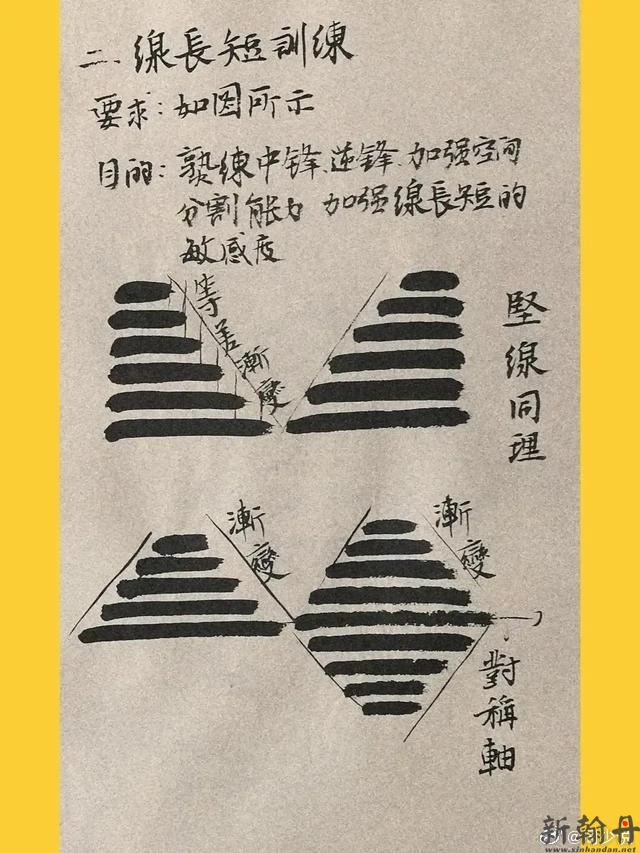 二、線長短訓練
要求：如図所示
目的：熟練中锋、逆锋、加强空间
分割能力 加强線長短的
敏感度
等差漸變
竪線同理
漸變
漸變
對稱軸
新翰丹
www.xinhandan.net